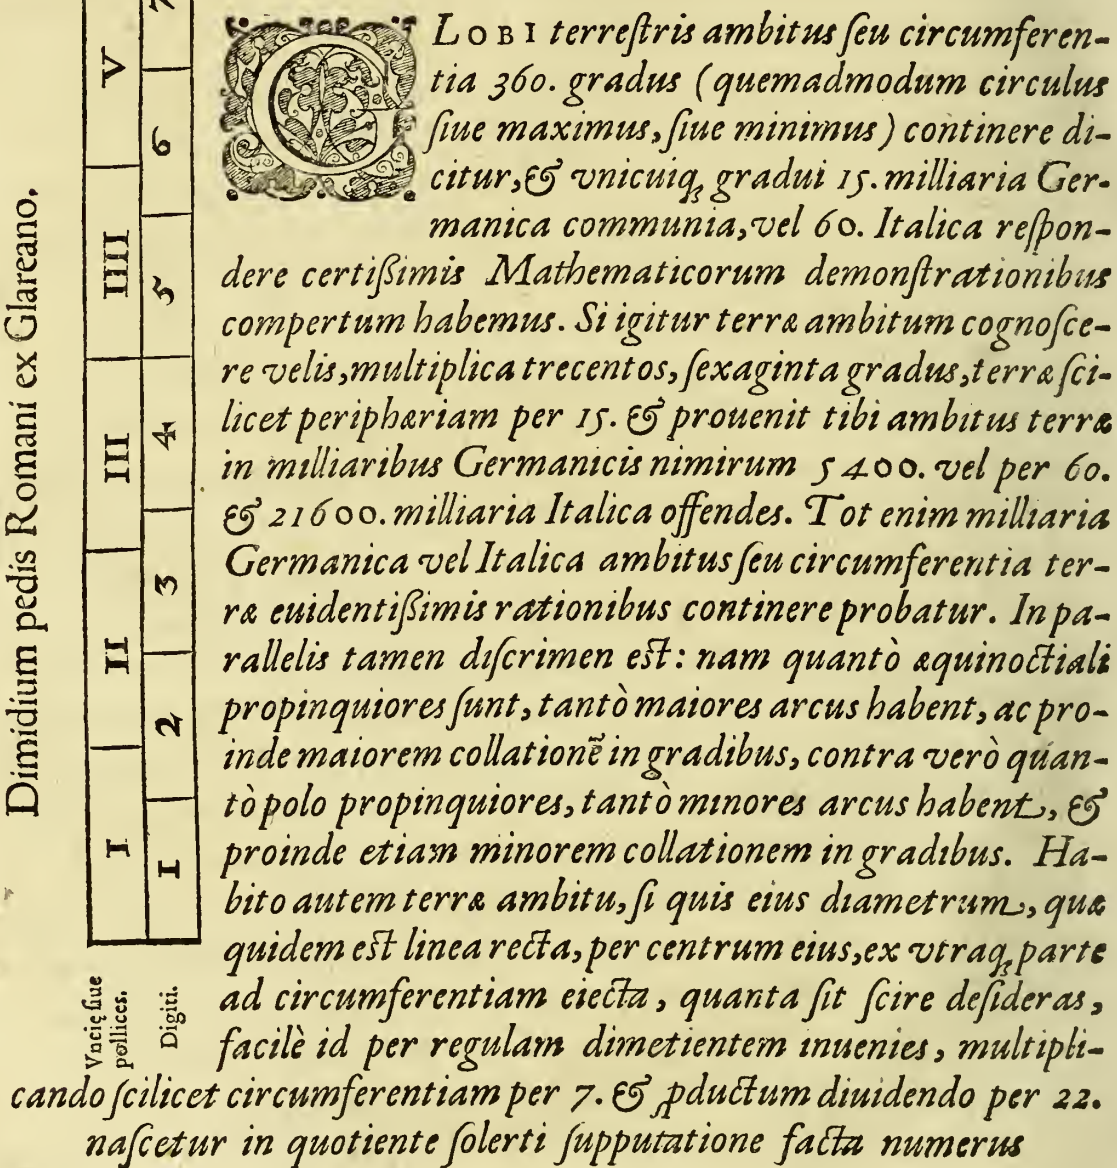 GLOBI terreſtris ambitus ſeu circumferen-
tia 360. gradus (quemadmodum circulus
ſiue maximus, ſiue minimus) continere di-
citur, & vnicuiq; gradui 15. milliaria Ger-
manica communia, vel 60. Italica reſpon-
dere certiſsimis Mathematicorum demonſtrationibus
compertum habemus. Si igitur terræ ambitum cognoſce-
re velis, multiplica trecentos, ſexaginta gradus, terræ ſci-
licet periphæriam per 15. & prouenit tibi ambitus terræ
in milliaribus Germanicis nimirum 5400. vel per 60.
& 21600. milliaria Italica offendes. Tot enim milliaria
Germanica vel Italica ambitus ſeu circumferentia ter-
ræ euidentiſsimis rationibus continere probatur. In pa-
rallelis tamen diſcrimen eſt: nam quantò æquinoctiali
propinquiores ſunt, tantò maiores arcus habent, ac pro-
inde maiorem collationẽ in gradibus, contra verò quan-
tò polo propinquiores, tantò minores arcus habent, &
proinde etiam minorem collationem in gradibus. Ha-
bito autem terræ ambitu, ſi quis eius diametrum, quæ
quidem eſt linea recta, per centrum eius, ex vtraq; parte
ad circumferentiam eiecta, quanta ſit ſcire deſideras,
facilè id per regulam dimetientem inuenies, multipli-
cando ſcilicet circumferentiam per 7. & ꝓductum diuidendo per 22.
naſcetur in quotiente ſolerti ſupputatione facta numerus
Dimidium pedis Romani ex Glareano.
Vncię ſiue
pollices.
I II III IIII V
Digiti.
1 2 3 4 5 6 7